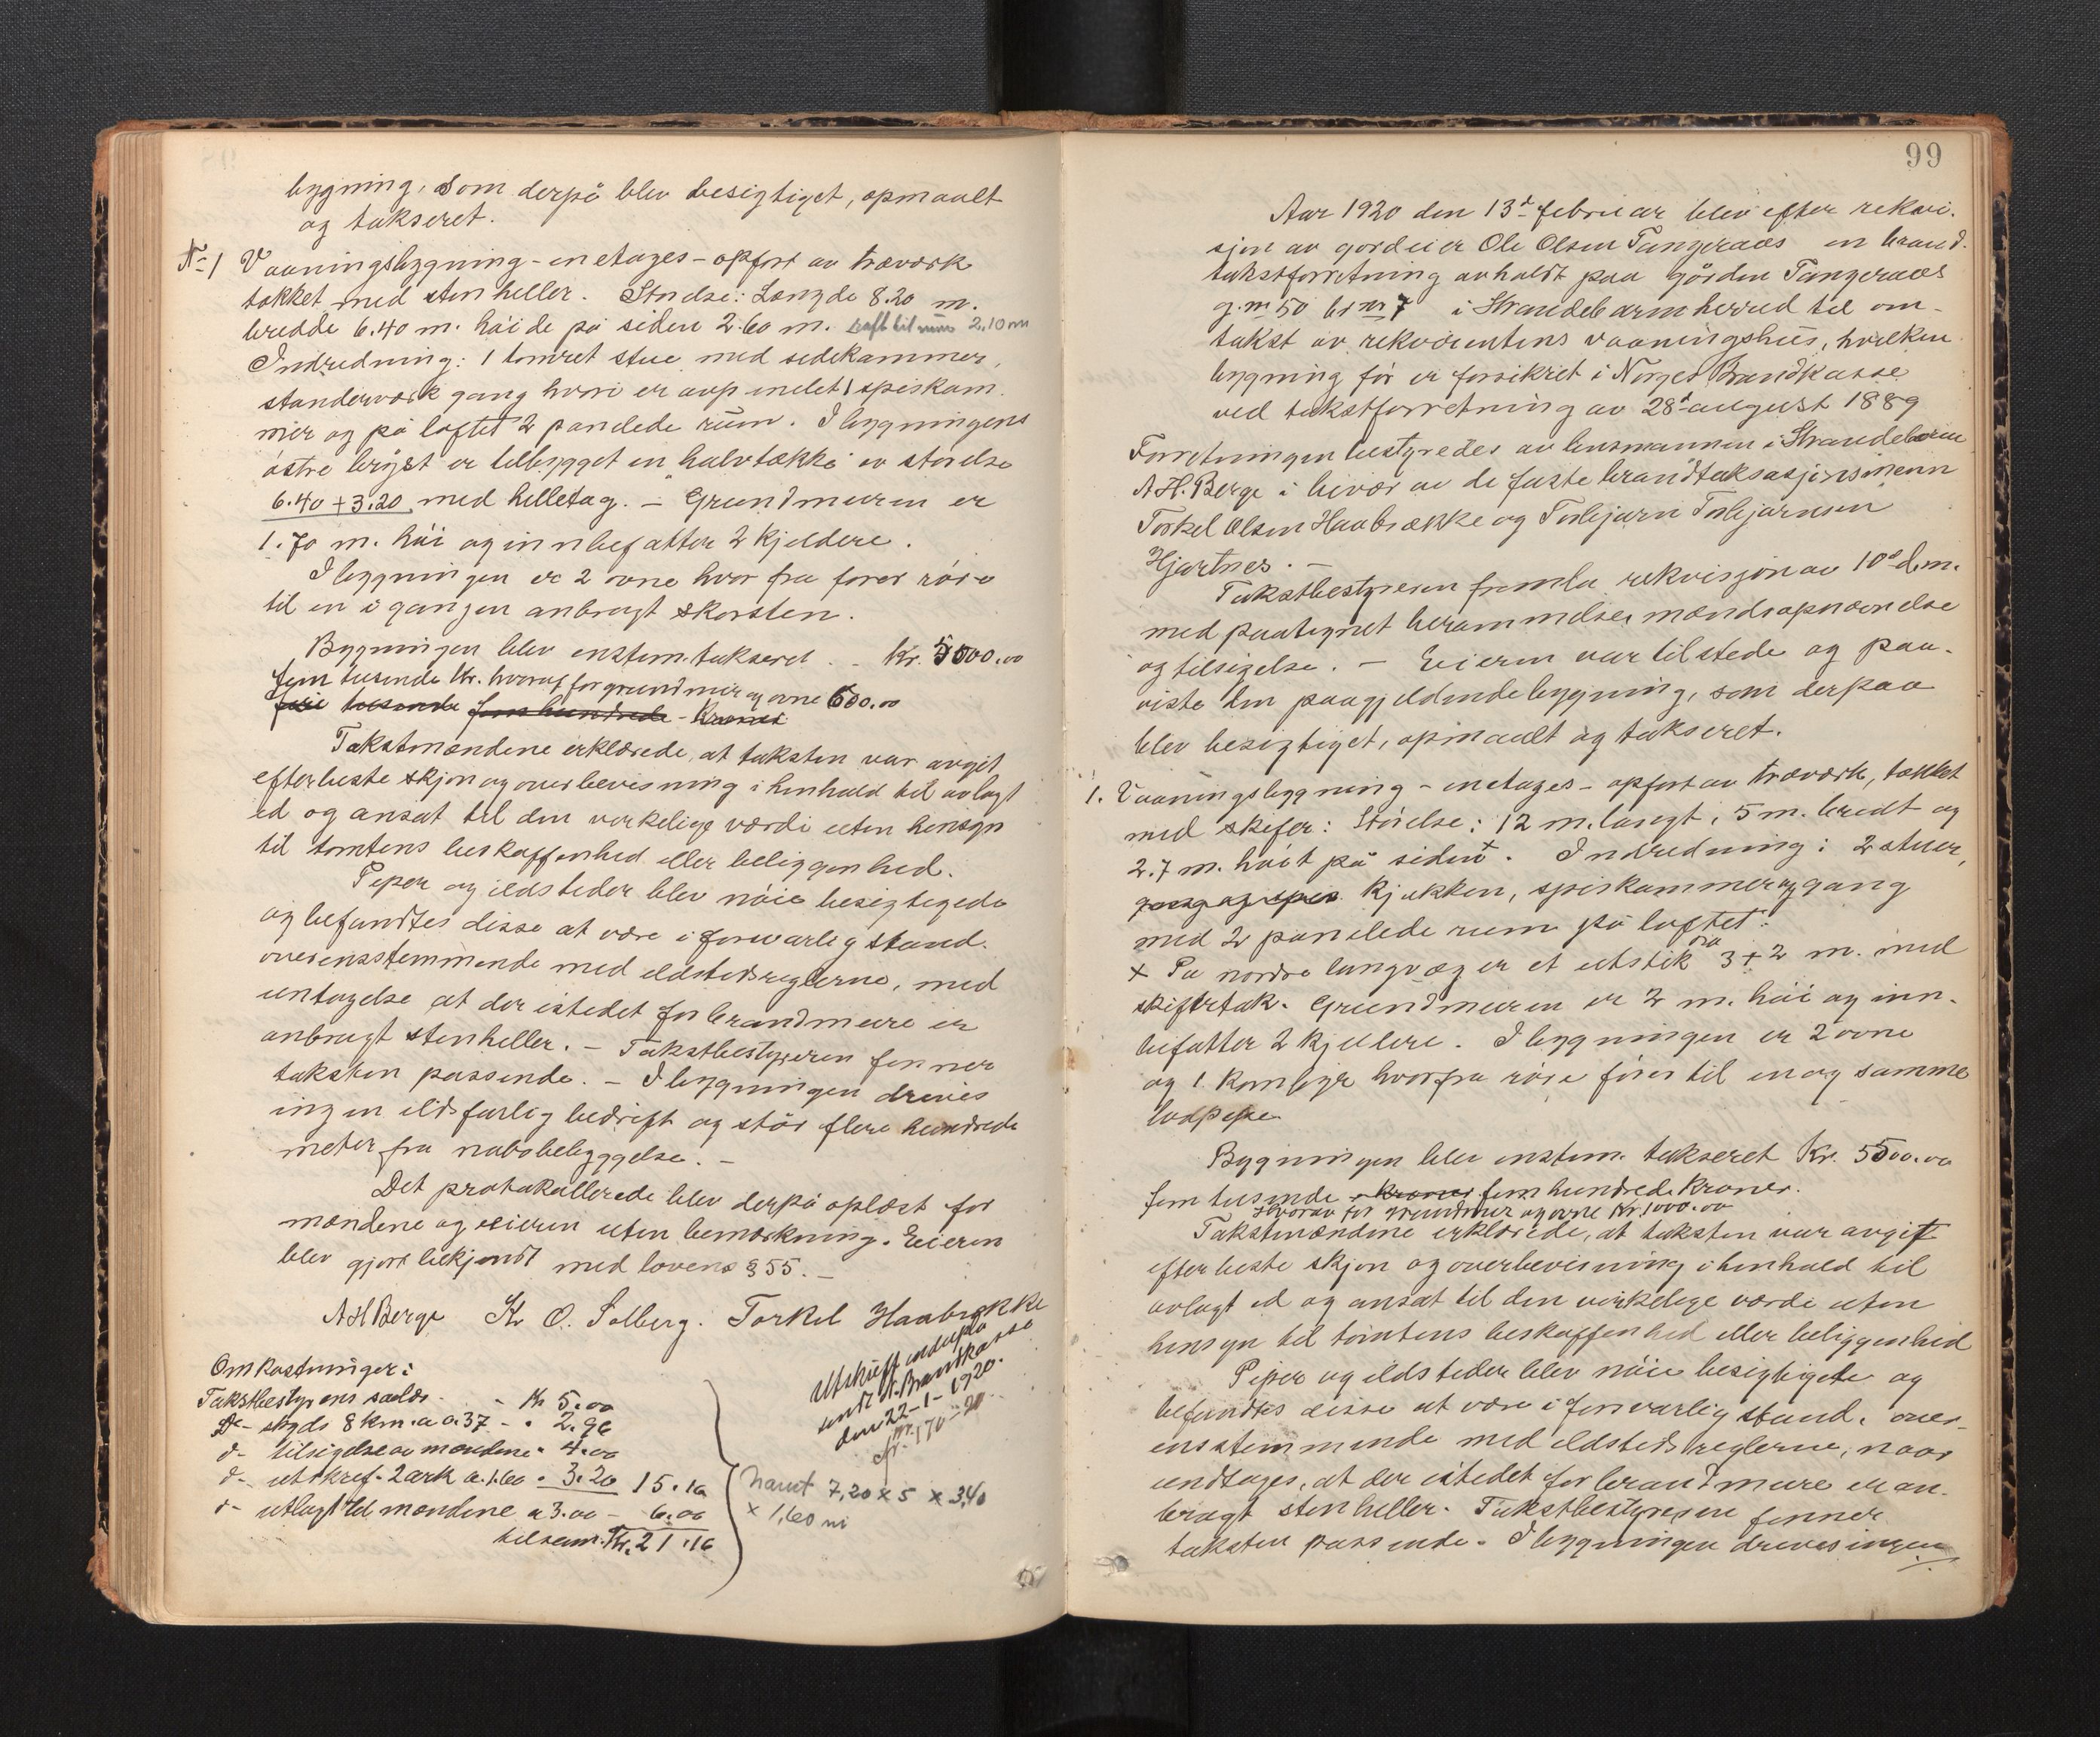 bygning, som derpå blev besigtiget, opmaalt
og takseret.
No 1 Vaaningsbygning - en etages - opført av træværk
tækket med stenheller. Størelse: Længde 8.20 m.
bredde 6.40 m. höide på siden 2.60 m. 2,10 m
Indredning: 1 tømret stue med sidekammer,
standerværk gang hvori er avpanelet 1 spiskam-
mer og på loftet 2 panelede rum. I bygningens
östre bryst er tilbygget en "halvtække" av störelse
6.40 + 3.20 med helletag. - Grundmuren er
1.70 m. höi og innbefatter 2 kjeldere.
I bygningen er 2 ovne hvor fra fører rör
til en i gangen anbragt skorsten.
Bygningen blev enstem. takseret - Kr. 5000.00
fem tusende Kr. hvorav for grundmur og ovne 600.00
fire tusende fem hundrede - Kroner
Takstmændene erklærede, at taksten var avgit
efter beste skjøn og overbevisning i henhold til avlagt
ed og ansat til den verkelige værdi uten hensyn
til tomtens beskaffenhed eller beliggenhed.
Piper og ildsteder blev nöie besigtigede
og befandtes disse at være i forsvarlig stand.
overensstemmende med ildstedsreglerne, med
untagelse at der istedet for brandmure er
anbragt stenheller. - Takstbestyreren finner
taksten passende. - I bygningen drives
ingen ildsfarlig bedrift og står flere hundrede
meter fra nabobebyggelse. -
Det protokollerede blev derpå oplæst for
mændene og eieren uten bemærkning. Eieren
blev gjort bekjendt med lovens § 55. -
AH Berge Kr O. Solberg. Torkel Haabrække
Utskrift
sendt N. Brandkasse
den 22-1-1920.
Jr. nr. 170-20
Omkostninger:
Takstbestyrens salær - - Kr 5.00
Do - skyds 8 km. a 0.37 - " 2.96
d- tilsigelse av mændene " 4.00
d- utskrif. 2 ark a. 1.60 " 3.20 15.16
d- utlagt til mændene a 3.00 - 6.00
tilsam. Kr. 21.16
7,20 x 5 x 3,40
x 1,60 m
99
Aar 1920 den 13d februar blev efter rekvi-
sjon av gardeier Ole Olsen Tangeraas en brand-
takstforretning avholdt paa gården Tangeraas
g. nr 50 br nr 7 i Strandebarm herred til om-
takst av rekvirentens vaaningshus, hvilken
bygning för er forsikret i Norges Brandkasse
ved takstforretning av 28d august 1889
Forretningen bestyredes av lensmannen i Strandebarm
A H. Berge i hivær av de faste brandtaksasjonsmenn
Torkel Olsen Haabrække og Torbjørn Torbjørnsen
Hjartnes. -
Takstbestyreren fremla rekvisjon av 10d d.m.
med paategnet berammelse, mændsopnævnelse
og tilsigelse. - Eieren var tilstede og paa-
viste den paagjeldende bygning, som derpaa
blev besigtiget, opmaalt og takseret.
1. Vaaningsbygning - en etages - opført av træværk, tækket
med skifer: Störelse: 12 m. langt, 5 m. bredt og
2.7 m. höit på siden x. Indredning: 2 stuer,
gang og spis Kjøkken, spiskammer og gang
med 2 panelede rum på loftet:
x Pa nordre langvæg er et utstik 3 + 2 m. med
skifertak. Grundmuren er 2 m. höi og inn-
befatter 2 kjellere. I bygningen er 2 ovne
og 1 Komfyr hvorfra röre förer til en og samme
lodpipe.
Bygningen blev enstem. takseret Kr. 5500.00
fem tusende kroner fem hundrede Kroner.
Hvorav for grundmur og ovne Kr. 1000.00
Takstmændene erklærede, at taksten var avgit
efter beste skjøn og overbevisning i henhold til
avlagt ed og ansat til den virkelige værdi uten
hensyn til tomtens beskaffenhed eller beliggenhed
Piper og ildsteder blev nöie besigtigede og
befandtes disse at være i forsvarlig stand. over-
ensstemmende med ildstedsreglerne, naar
undtages, at der istedet for brandmure er an-
bragt stenheller. Takstbestyreren finner
taksten passende. - I bygningen drives ingen